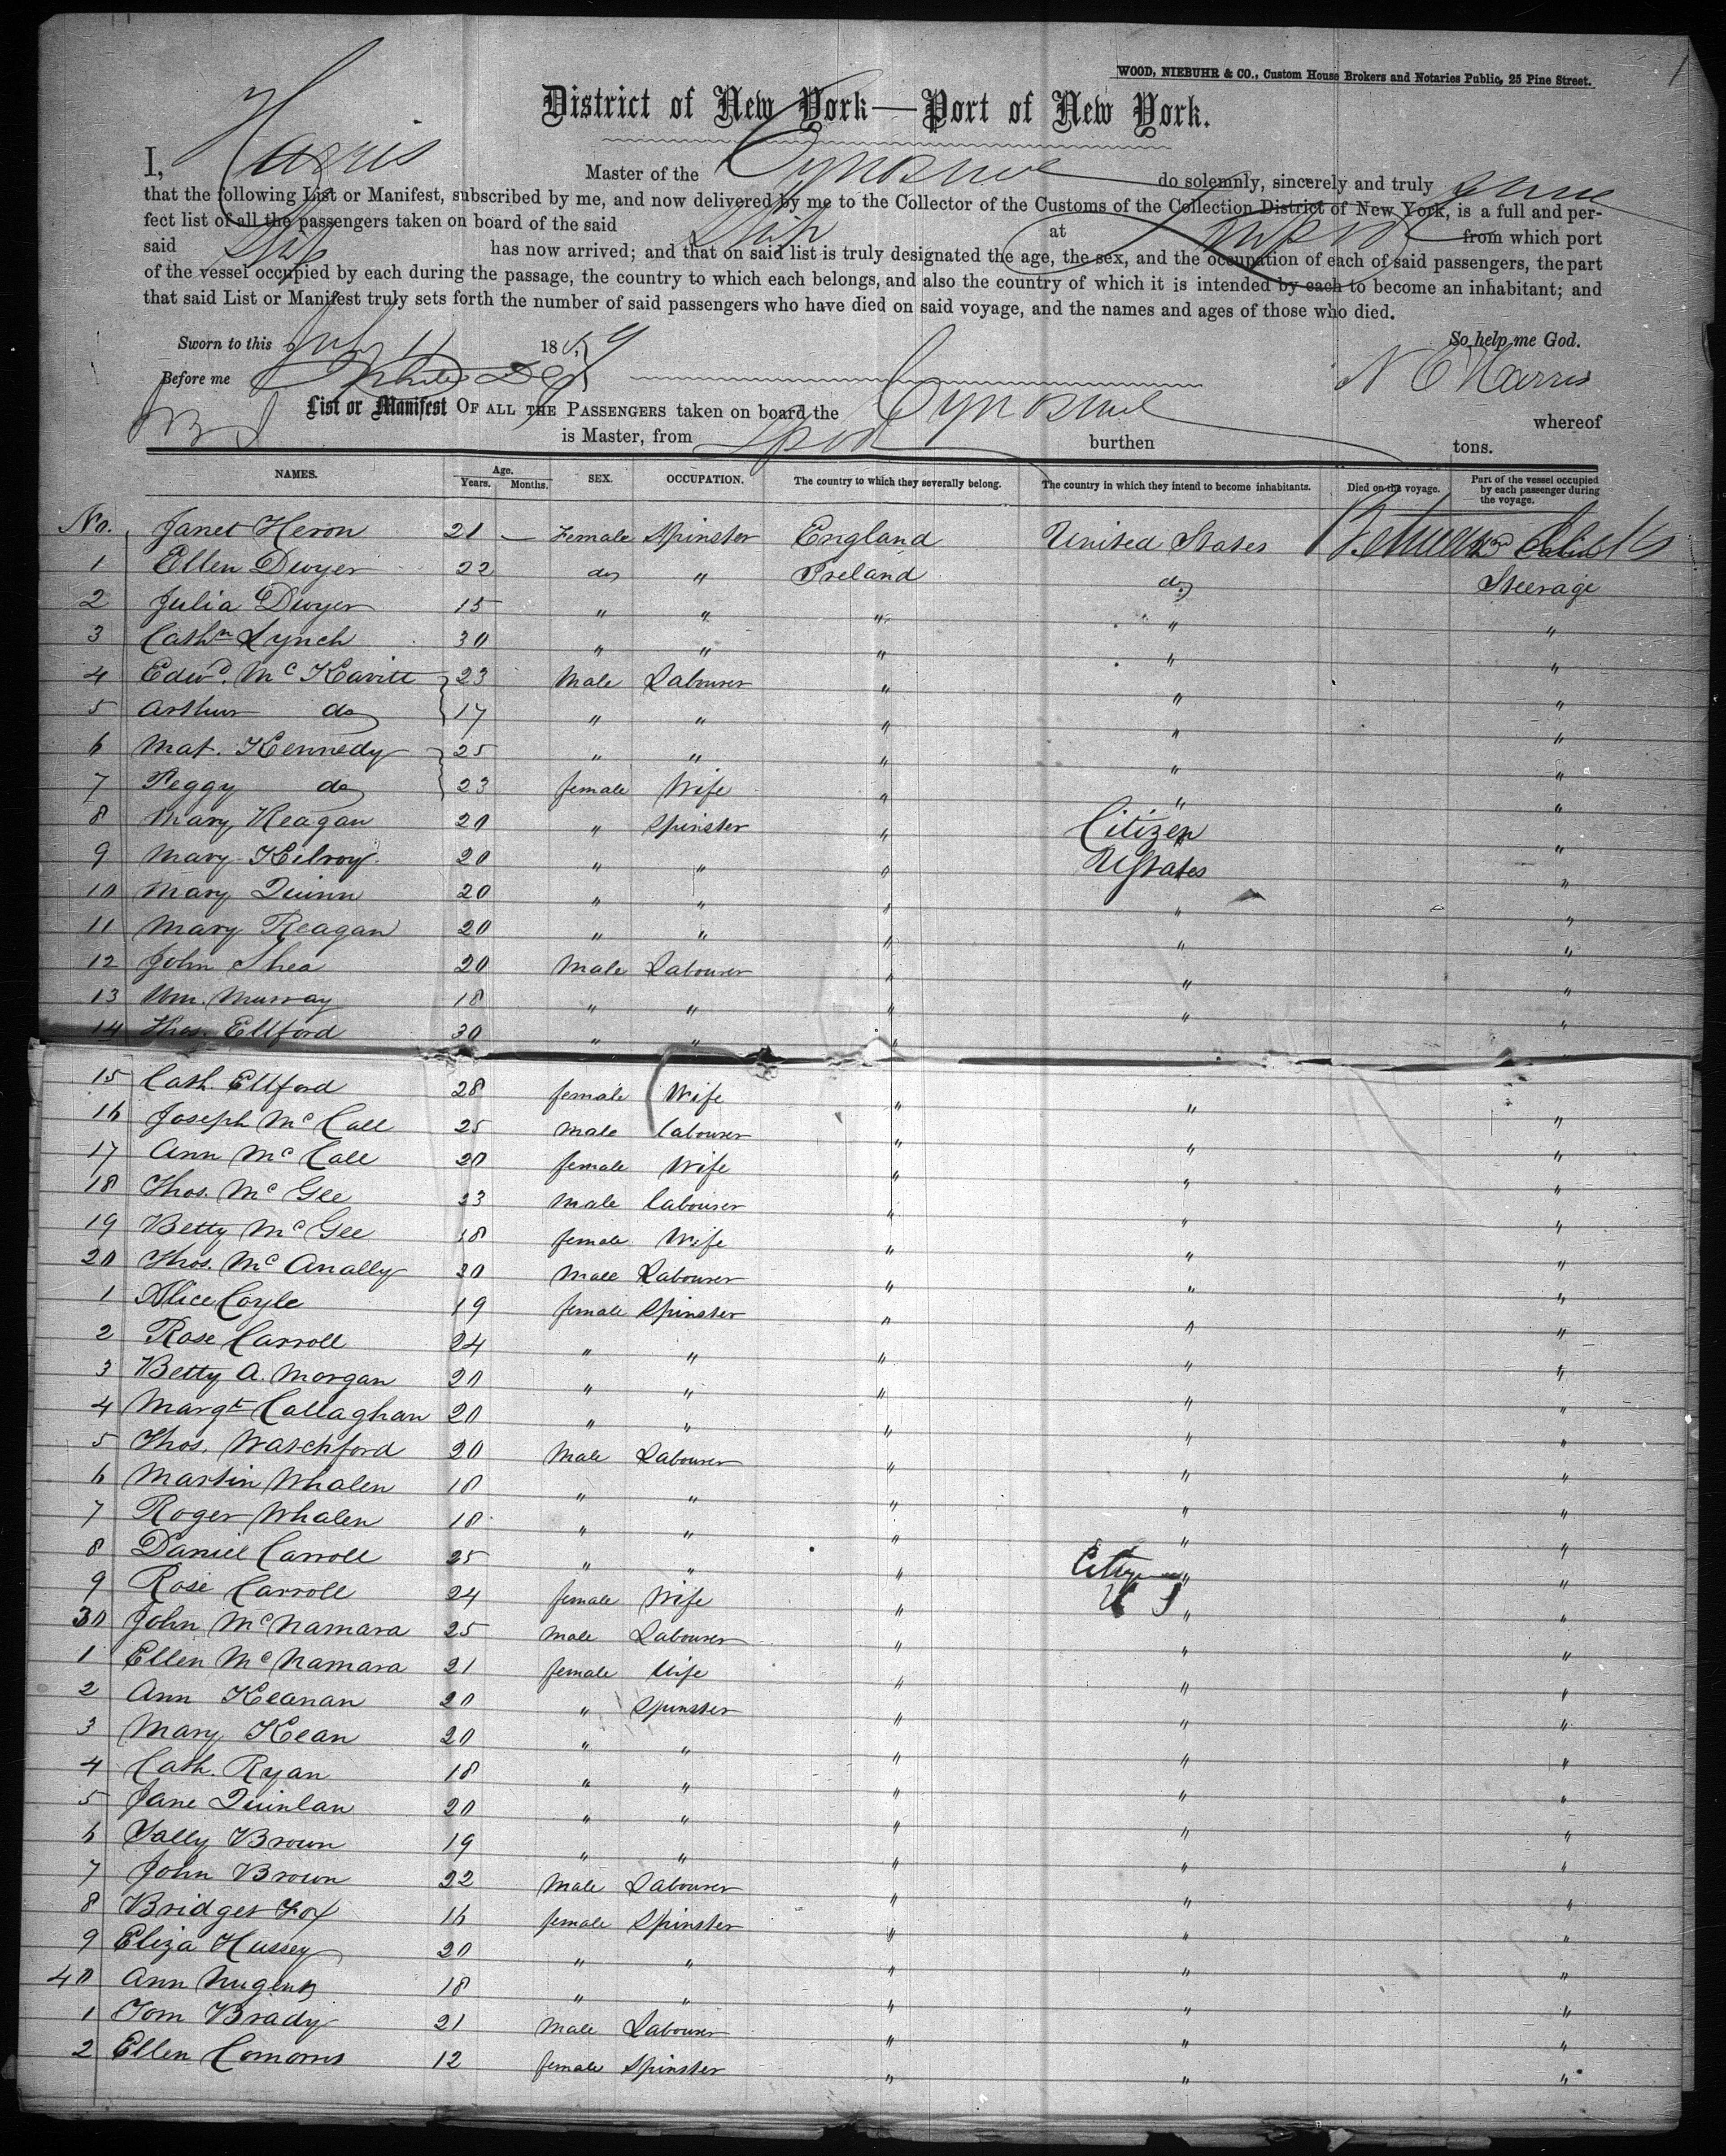 WOOD, NIEBUHR & CO., Custom House Brokers and Notaries Public, 25 Pine Street.
District of New York—Port of New York.
I, Harris Master of the Cynosure do solemnly, sincerely and truly
that the following List or Manifest, subscribed by me, and now delivered by me to the Collector of the Customs of the Collection District of New York, is a full and per-
fect list of all the passengers taken on board of the said Ship at from which port
said Ship has now arrived; and that on said list is truly designated the age, the sex, and the occupation of each of said passengers, the part
of the vessel occupied by each during the passage, the country to which each belongs, and also the country of which it is intended by each to become an inhabitant; and
that said List or Manifest truly sets forth the number of said passengers who have died on said voyage, and the names and ages of those who died.
Sworn to this July 11 1859 So help me God.
Before me N E Harris
List or Manifest OF ALL THE PASSENGERS taken on board the Cynosure whereof
is Master, from Lpool burthen tons.
NAMES. Age. Years. Months. SEX. OCCUPATION. The country to which they severally belong. The country in which they intend to become inhabitants. Died on the voyage. Part of the vessel occupied by each passenger during the voyage.
No. Janet Heron 21 — Female Spinster England United States
1 Ellen Dwyer 22 do " Ireland do Steerage
2 Julia Dwyer 15 " " " " "
3 Cathn Lynch 30 " " " " "
4 Edwd. Mc Kavitt 23 Male Labourer " " "
5 Arthur do 17 " " " " "
6 Mat. Kennedy 25 " " " " "
7 Peggy do 23 female Wife " " "
8 Mary Keagan 20 " Spinster " Citizen "
9 Mary Kilroy 20 " " " UStates "
10 Mary Quinn 20 " " " " "
11 Mary Reagan 20 " " " " "
12 John Shea 20 Male Labourer " " "
13 Wm. Murray 18 " " " " "
14 Thos. Ellford 30 " " "
15 Cath. Ellford 28 female Wife " " "
16 Joseph Mc Call 25 male labourer " " "
17 Ann Mc Call 20 female Wife " " "
18 Thos. Mc Gee 23 male labourer " " "
19 Betty Mc Gee 18 female Wife " " "
20 Thos. Mc Anally 20 Male Labourer " " "
1 Alice Coyle 19 female Spinster " " "
2 Rose Carroll 24 " " " " "
3 Betty A. Morgan 20 " " " " "
4 Margt Callaghan 20 " " " " "
5 Thos. Watchford 20 Male Labourer " " "
6 Martin Whalen 18 " " " " "
7 Roger Whalen 18 " " " " "
8 Daniel Carroll 25 " " " Citizen " "
9 Rose Carroll 24 female Wife " U S " "
30 John McNamara 25 Male Labourer " " "
1 Ellen McNamara 21 female Wife " " "
2 Ann Keanan 20 " Spinster " " "
3 Mary Kean 20 " " " " "
4 Cath. Ryan 18 " " " " "
5 Jane Quinlan 20 " " " " "
6 Sally Brown 19 " " " " "
7 John Brown 22 Male Labourer " " "
8 Bridget Fox 16 female Spinster " " "
9 Eliza Hussey 20 " " " " "
40 Ann Nugent 18 " " " " "
1 Tom Brady 21 Male Labourer " " "
2 Ellen 12 female Spinster " " "